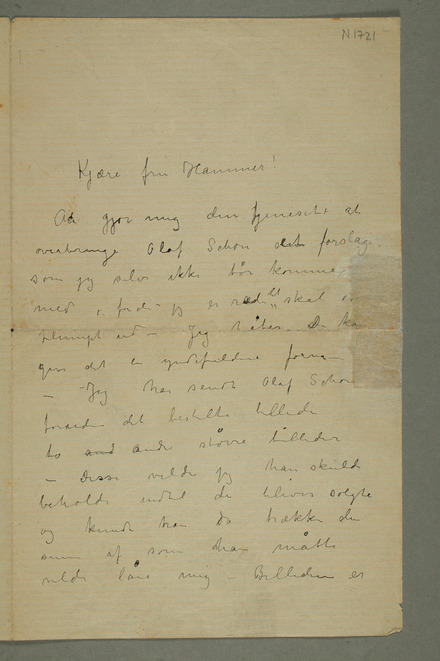 N 1721
Kjære fru Hammer!
Aa gjør mig den tjeneste at
overbringe Olaf Schou det forslag
som jeg selv ikke tør komme
med, fordi jeg er ræd det skal
plumpt ud – Jeg håber De kan
gøre det en yndefuldere form –
– Jeg har sendt Olaf Schou
foruden det bestilte billede
to and andre større billeder
– Disse vilde jeg han skulde
beholde indtil de bliver solgte
og kunde han da trække den
sum af som han måtte
vilde låne mig – Billederne er